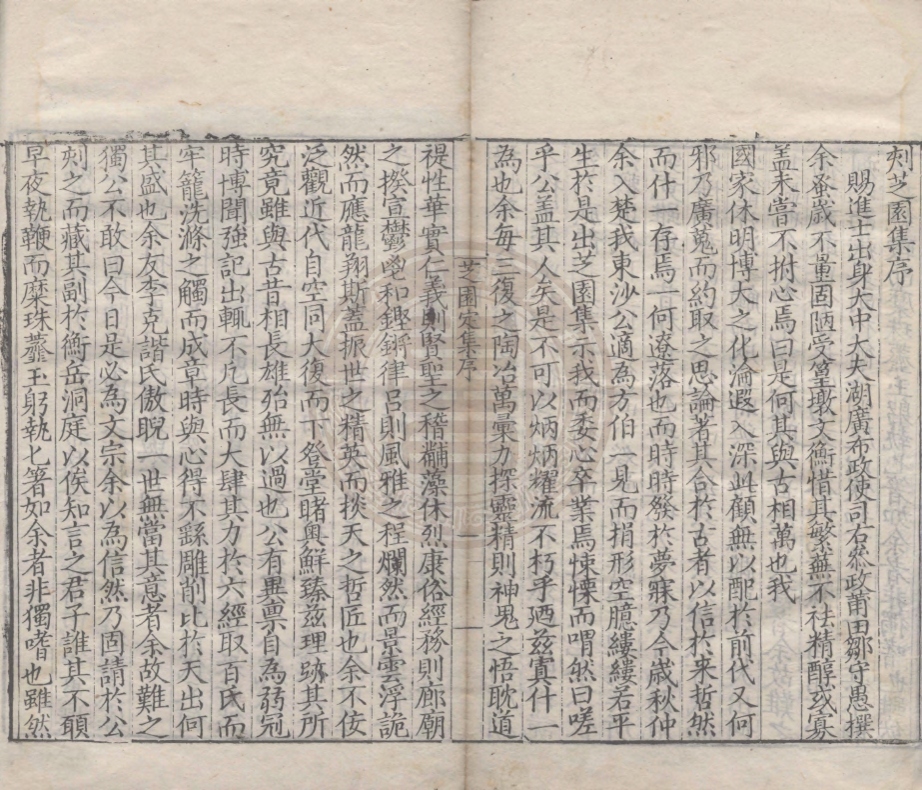 刻芝園集序
賜進士出身大中大夫湖廣布政使司右叅政莆田鄒守愚撰
余蚤歲不量固陋受篁墩文衡惜其繁蕪不祛精醇或寡
盖未嘗不拊心焉曰是何其與古相萬也我
國家休明博大之化淪遐入深此顧無以配於前代又何
邪乃廣蒐而約取之思論著其合於古者以信於来哲然
而什一存焉一何遼落也而時時發於夢寐乃今歲秋仲
余入楚我東沙公適為方伯一見而捐形空臆縷縷若平
生於是出芝園集示我而委心卒業焉悚慄而喟然曰嗟
乎公盖其人矣是不可以炳炳耀流不朽乎廼兹寘什一
為也余每三復之陶冶萬彙力探靈精則神鬼之悟耽道
芝園定集序
一
禔性華實仁義則賢聖之稽黼藻休烈康俗經務則廊廟
之揆宣鬱鬯和鏗鏘律呂則風雅之程爛然而景雲浮詭
然而應龍翔斯蓋振世之精英而掞天之哲匠也余不佞
泛觀近代自空同大復而下登堂睹奥鮮臻兹理跡其所
究竟雖與古昔相長雄殆無以過也公有異禀自為弱冠
時博聞強記出輒不凡長而大肆其力於六經取百氏而
牢籠洗滌之觸而成章時與心得不繇雕削比於天出何
其盛也余友李克諧氏傲睨一世無當其意者余故難之
獨公不敢曰今日是必為文宗余以為信然乃固請於公
刻之而藏其副於衡岳洞庭以俟知言之君子誰其不願
早夜執鞭而糜珠虀玉躬執匕箸如余者非獨嗜也雖然